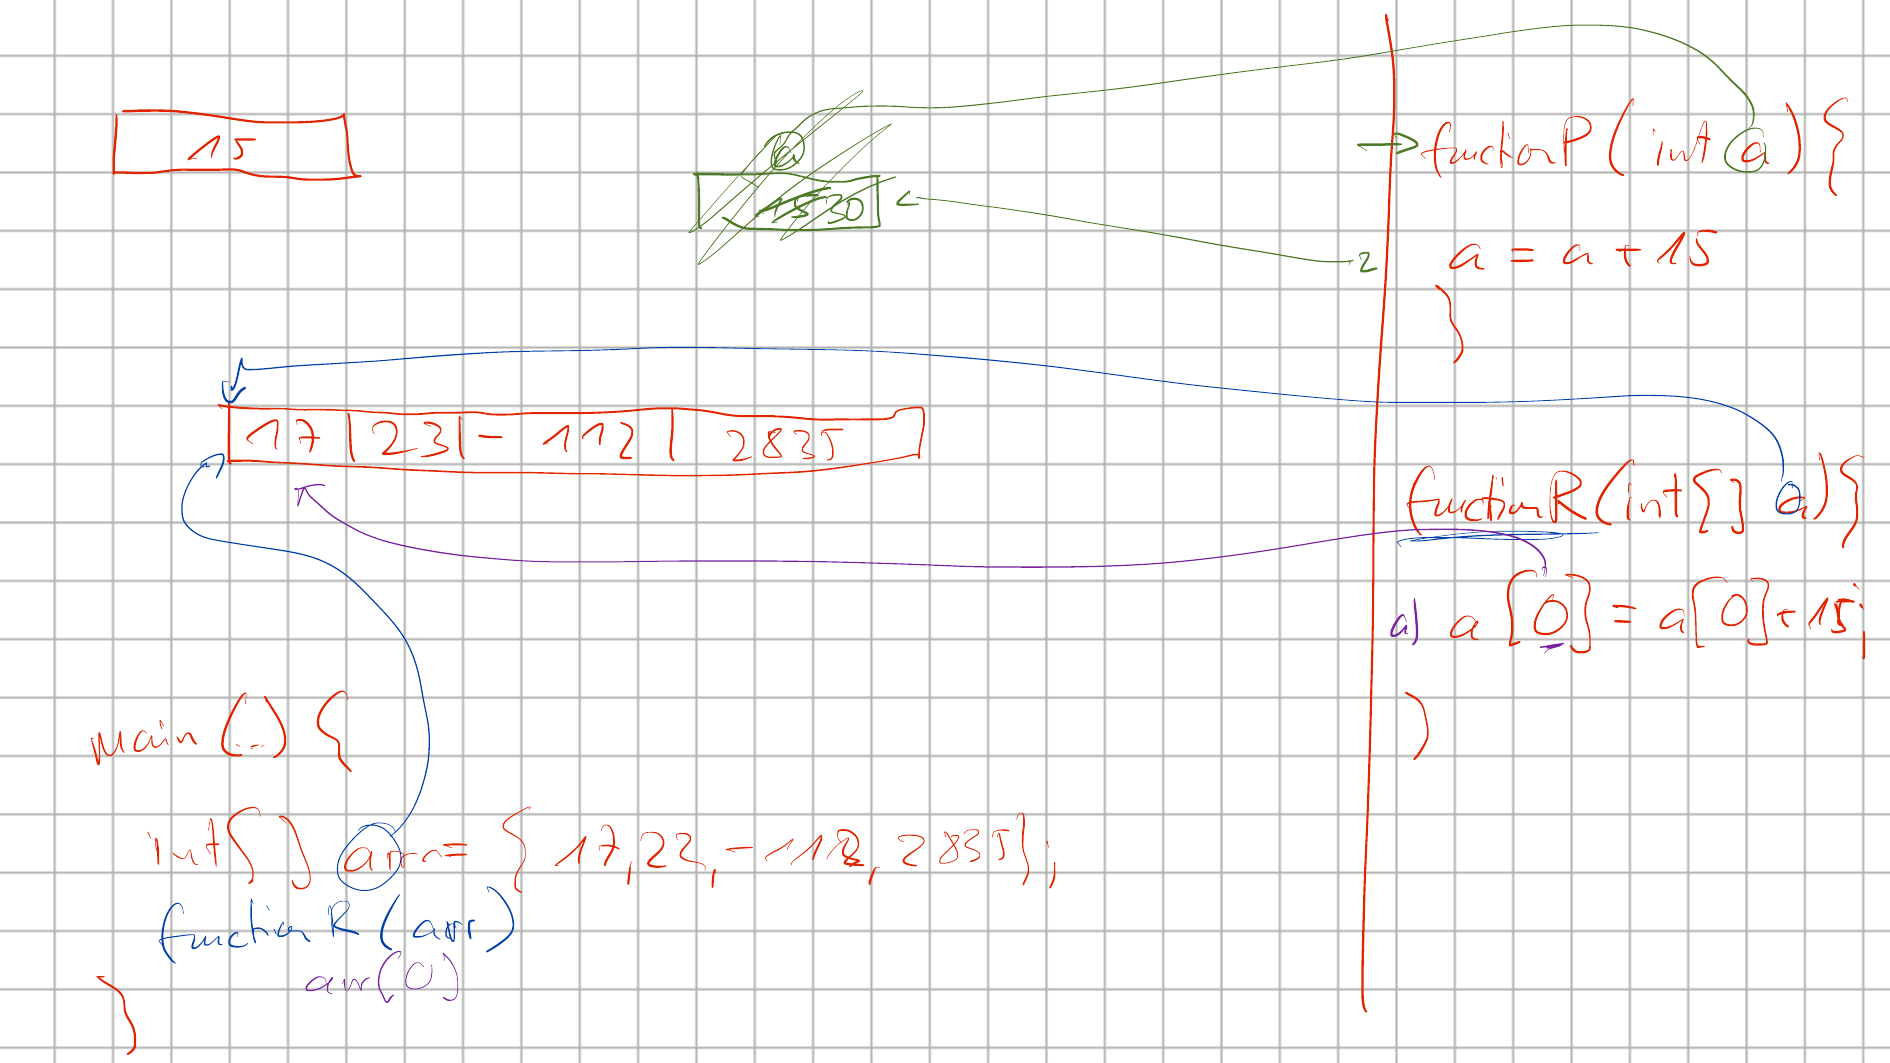 15
a
15 30
functionP (int a) {
2
a = a + 15
}
17 | 23 | - 112 | 2835
functionR (int[] a) {
a) a [0] = a[0] + 15;
}
main (...) {
int[] arr = { 17, 22, -112, 2835};
functionR (arr)
arr[0]
}